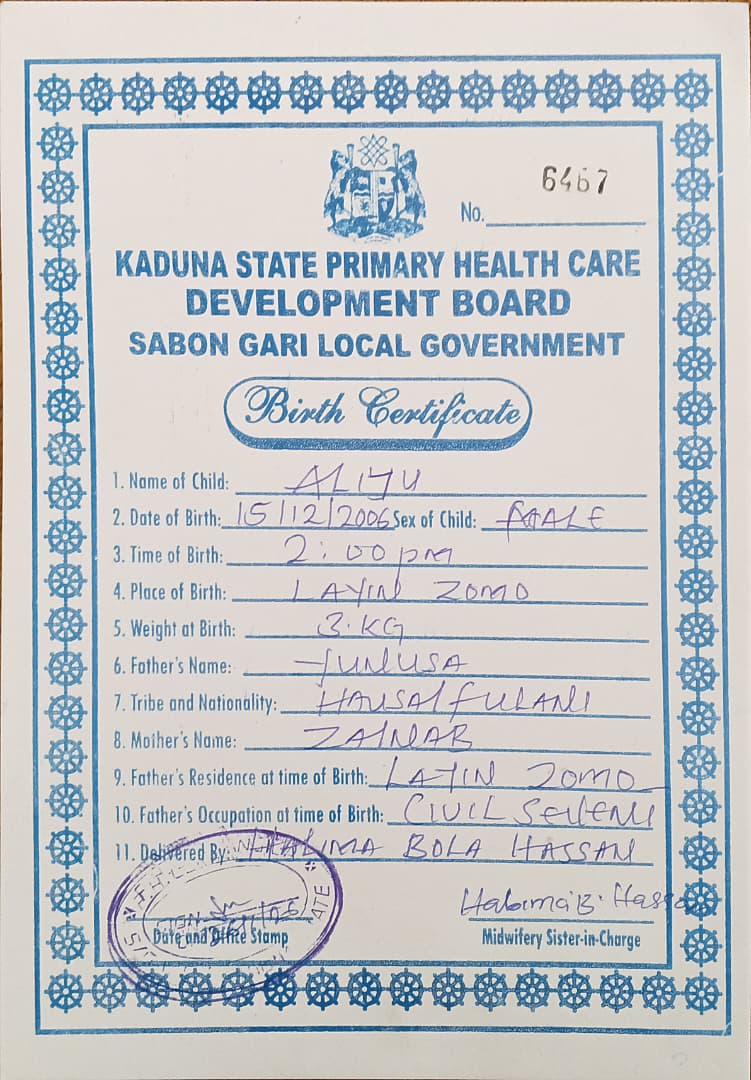 6467
No.
KADUNA STATE PRIMARY HEALTH CARE
DEVELOPMENT BOARD
SABON GARI LOCAL GOVERNMENT
Birth Certificate
1. Name of Child: ALIYU
2. Date of Birth: 15/12/2006 Sex of Child: MALE
3. Time of Birth: 2:00pm
4. Place of Birth: LAYIN ZOMO
5. Weight at Birth: 3.KG
6. Father's Name: YUNUSA
7. Tribe and Nationality: HAUSA/FULANI
8. Mother's Name: ZAINAB
9. Father's Residence at time of Birth: LAYIN ZOMO
10. Father's Occupation at time of Birth: CIVIL
11. Delivered By: HALIMA BOLA HASSAN
Halima B. Hassan
Date and Office Stamp Midwifery Sister-in-Charge